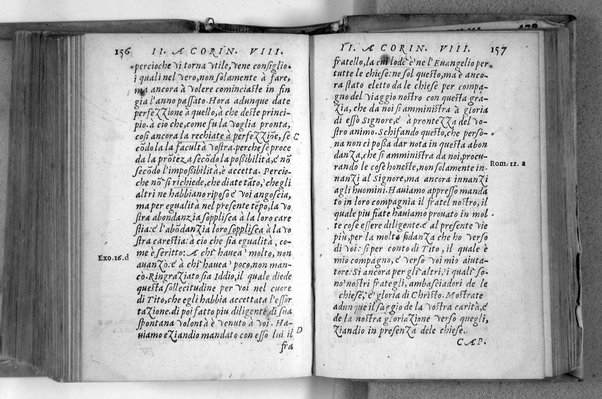 156 II. A CORIN. VIII.
percioche vi torna vtile, vene consiglio
i quali nel vero, non solamente à fare,
ma ancora à volere cominciaste in fin
gia l'anno passato. Hora adunque date
perfezzione à quello, à che deste princi-
pio, à cio che, come fu la voglia pronta,
cosi ancora la rechiate à perfezziõe, se
cõdo la facultà vostra. perche se proce
da la prõtezza secõdo la poßibilità, e nõ
secõdo l'impoßibilità, è accetta. Percio-
che nõ si richiede, che diate tato, che gli
altri ne habbiano riposo e voi angoscia,
ma per egualità nel presente tẽpo, la vo
stra abondanzia sopplisca à la loro care
stia: e l'abõdanzia loro sopplisca à la vo
stra carestia: à cio che sia egualità, co-
me è scritto: A chi hauea molto, non
auanzò: e à chi hauea poco, non man-
cò. Ringraziato sia Iddio, il quale diede
questa sollecitudine per voi nel cuore
di Tito, che egli habbia accettata l'essor
tazione. di poi fatto piu diligente, di sua
spontana volontà è venuto à voi. Ha-
uiamo eziandio mandato con esso lui il
fra
C
Exo.16.d
D
II. A CORIN. VIII. 157
fratello, la cui lode è ne l'Euangelio per
tutte le chiese: ne sol questo, ma è anco-
ra stato eletto da le chiese per compa-
gno del viaggio nostro con questa gra-
zia, che da noi si amministra à gloria
di esso Signore, e à prontezza del vo-
stro animo. Schifando questo, che perso-
na non ci possa dar nota in questa abon
danza, che si amministra da noi, procu-
rando le cose honeste, non solamente in-
nanzi al Signore, ma ancora innanzi
agli huomini. Hauiamo appresso manda
to in loro compagnia il fratel nostro, il
quale piu fiate hauiamo prouato in mol
te cose essere diligente: e al presente vie
piu, per la molta fidanza che ho verso
di voi: si per conto di Tito, il quale è
mio compagno, e verso voi mio aiuta-
tore: Si ancora per gli altri, i quali so-
no nostri frategli, ambasciadori de le
chiese, e gloria di Christo. Mostrate
adunque il saggio de la vostra carità, e
de la nostra gloriazione verso quegli,
ziandio in presenza dele chiese.
CAP.
Rom. 12. a